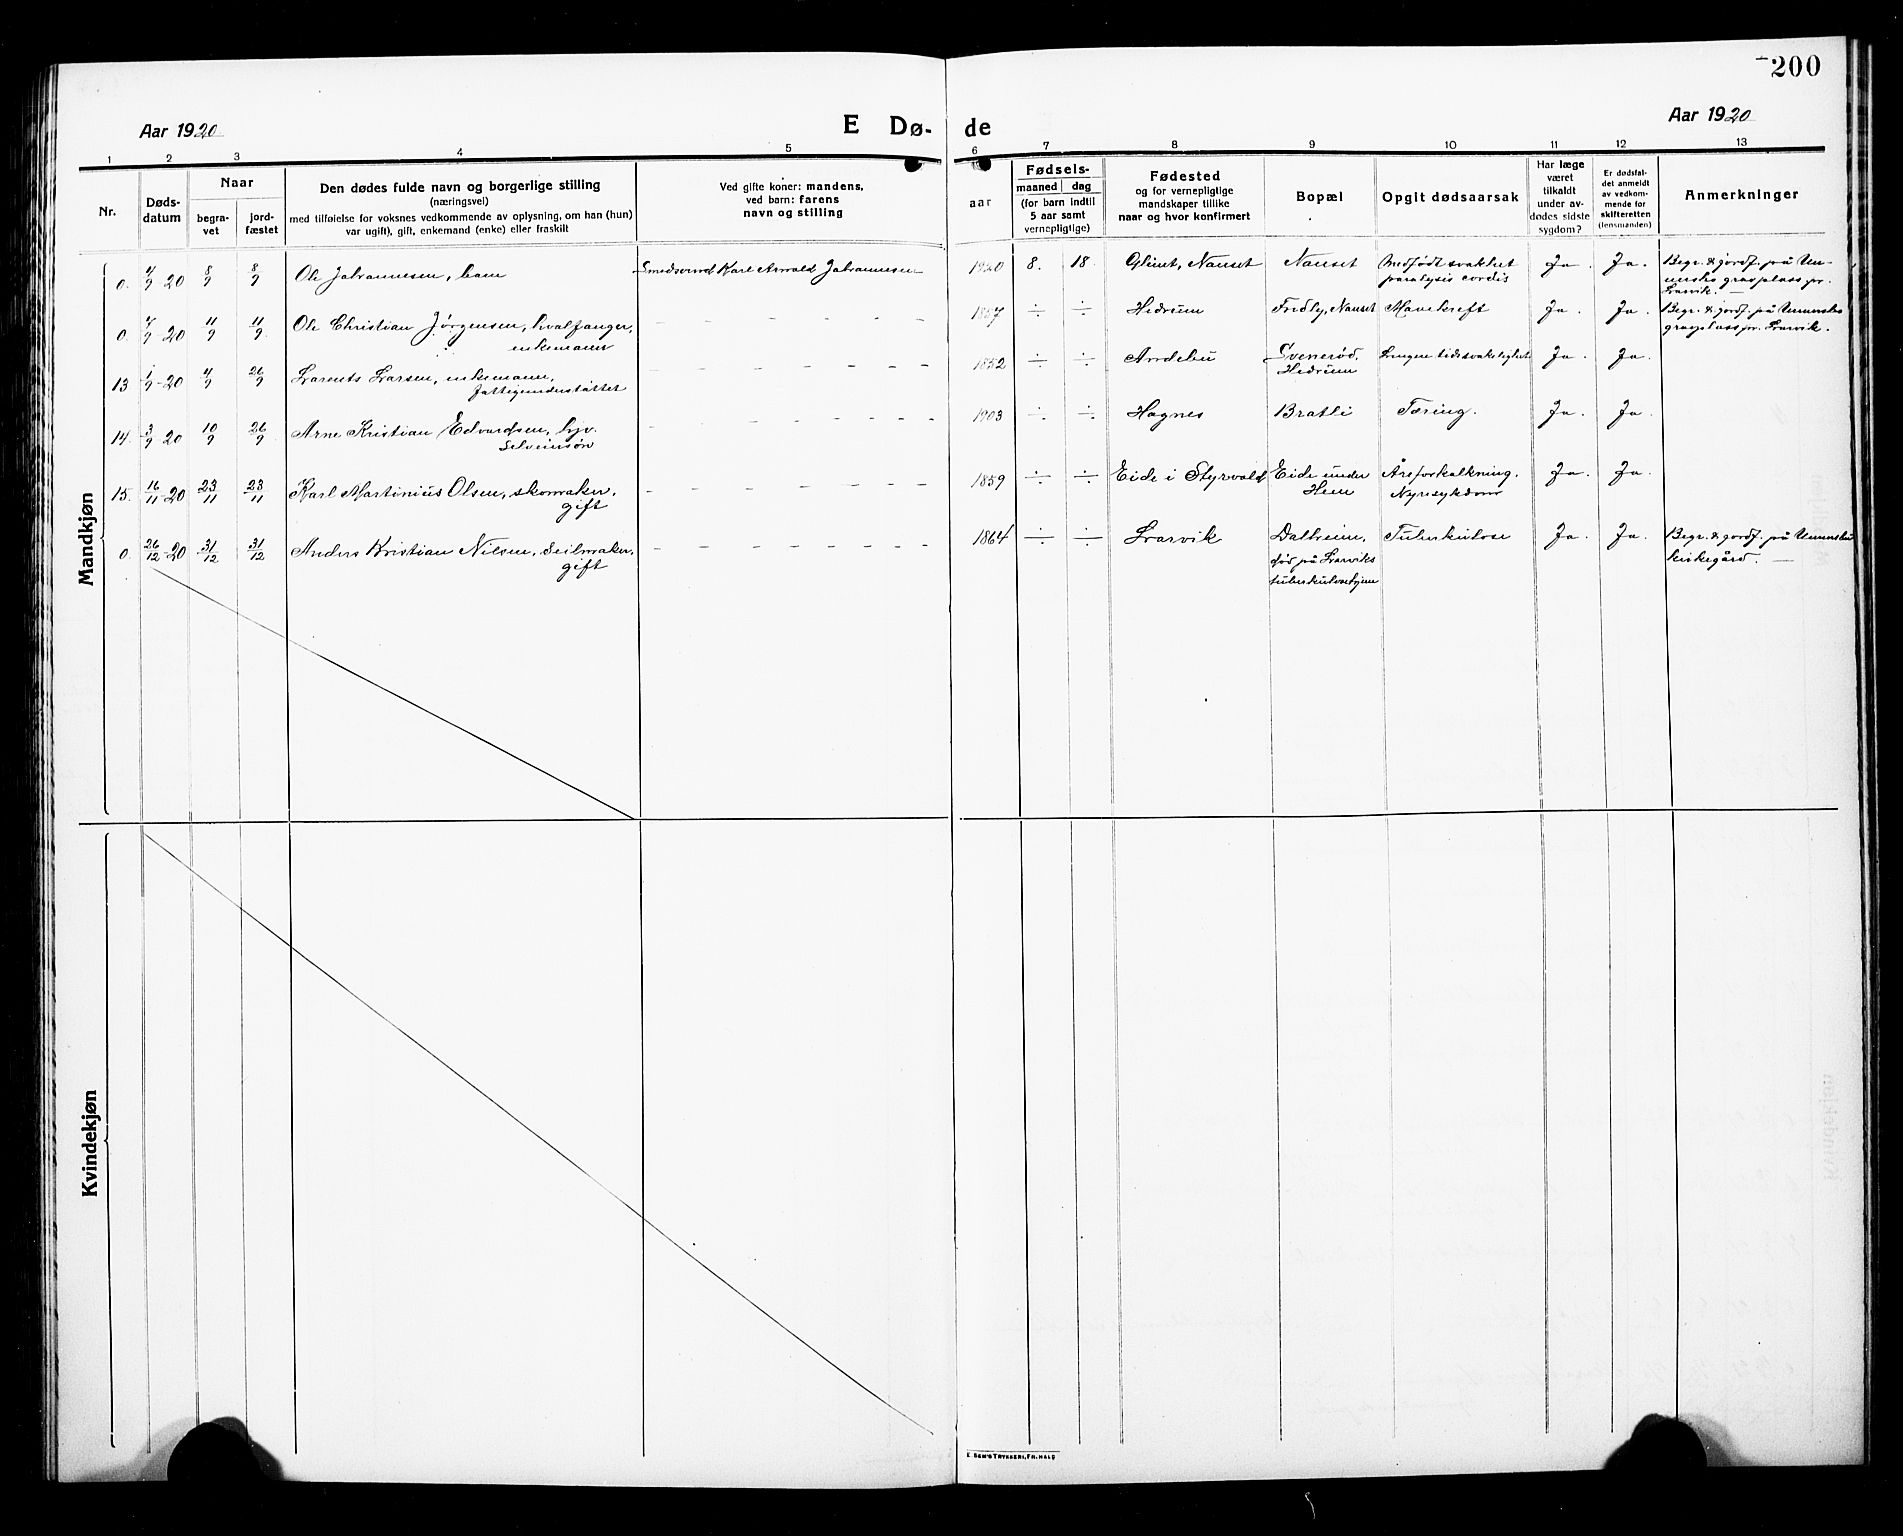 200
Aar 1920
E Dø- de
Aar 1920
1 2 3 4 5 6 7 8 9 10 11 12 13
Nr.
Døds-
datum
Naar
begra-
vet
jord-
fæstet
Den dødes fulde navn og borgerlige stilling
(næringsvei)
med tilføielse for voksnes vedkommende av oplysning, om han (hun)
var ugift), gift, enkemand (enke) eller fraskilt
Ved gifte koner: mandens,
ved barn: farens
navn og stilling
aar
Fødsels-
maaned dag
(for barn indtil
5 aar samt
vernepligtige)
Fødested
og for vernepligtige
mandskaper tillike
naar og hvor konfirmert
Bopæl
Opgit dødsaarsak
Har læge
været
tilkaldt
under av-
dødes sidste
sygdom?
Er dødsfal-
det anmeldt
av vedkom-
mende for
skifteretten
(lensmanden)
Anmerkninger
Mandkjøn
0. 4/9-20 8/9 8/9 Ole Johannesen, barn Smedsvend Karl Arvald Johannesen 1920 8. 18. Glint, Nanset Nanset Medfødt svakhet Ja. Ja. Begr. & jordf. på Un-
paralysis cordis nenslis gravplass pr.
Larvik. —
0. 7/9-20 11/9 11/9 Ole Christian Jørgensen, hvalfanger, – – – – – – – 1857 ÷ ÷ Hedrum Fridly, Nanset Mavekreft Ja. Ja. Begr. & jordf. på
enkemann gravplass pr. Larvik.
13 1/9-20 4/9 26/9 Larents Larsen, enkemann, – – – – – – – 1852 ÷ ÷ Andebu Svenerød, Lungetidssvakelighet Ja. Ja.
fattigunderstøttet Hedrum
14. 3/9-20 10/9 26/9 Arne Kristian Edvardsen, hjv. – – – – – – 1903 ÷ ÷ Hagnes Bratli Tæring. Ja. Ja.
15. 16/11-20 23/11 23/11 Karl Martinius Olsen, skomaker, – – – – – – – 1859 ÷ ÷ Eide i Styrvold Eide under Åreforkalkning. Ja. Ja.
gift Hem Nyresykdom
0. 26/12-20 31/12 31/12 Anders Kristian Nilsen, Seilmaker, – – – – – – – 1864 ÷ ÷ Larvik Dalheim, Tuberkulose Ja. Ja. Begr. & jordf. på
gift død på Larviks kirkegård. —
tuberkulosehjem
Kvindekjøn